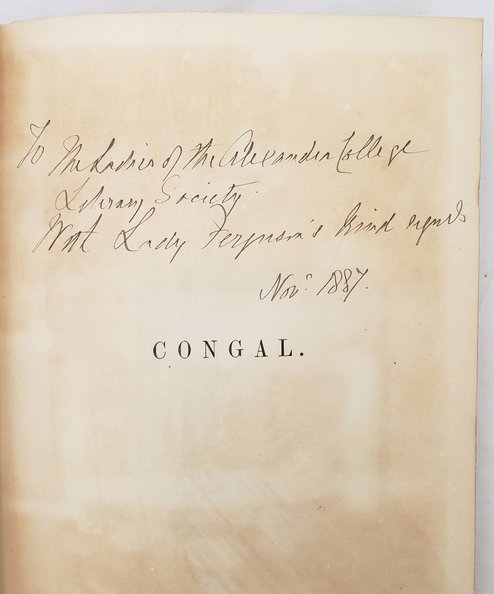 To The Ladies of the Alexandra College
Literary Society.
With Lady Ferguson's kind regards
Nov. 1887.
CONGAL.